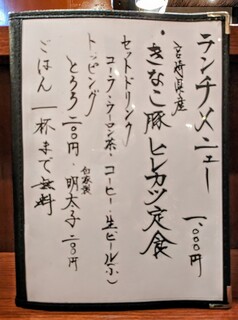 ランチメニュー
一、000円
宮崎県産
・きなこ豚ヒレカツ定食
セットドリンク
コーラ・ウーロン茶・コーヒー・生ビール(小)
トッピング
とろろ 二〇〇円・自家製 明太子 二〇〇円
ごはん 一杯まで無料